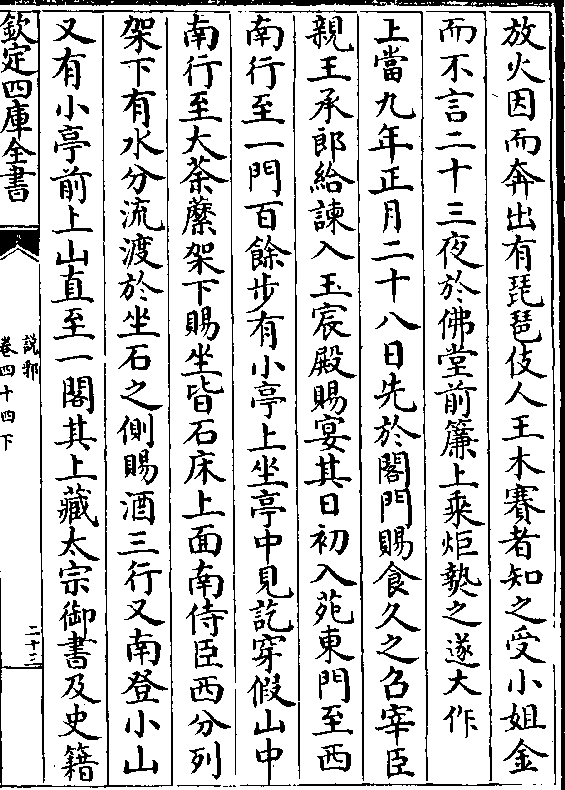 放火因而奔出有琵琶伎人王木賽者知之受小姐金
而不言二十三夜於佛堂前簾上乘炬𤍠之遂大作
上當九年正月二十八日先於閤門賜食久之召宰臣
親王承郎給諫入玉宸殿賜宴其日初入苑東門至西
南行至一門百餘步有小亭上坐亭中見訖穿假山中
南行至大荼蘼架下賜坐皆石床上面南侍臣西分列
架下有水分流渡於坐石之側賜酒三行又南登小山
又有小亭前上山直至一閣其上藏太宗御書及史籍
欽定四庫全書
說郛
卷四十四下
二十三